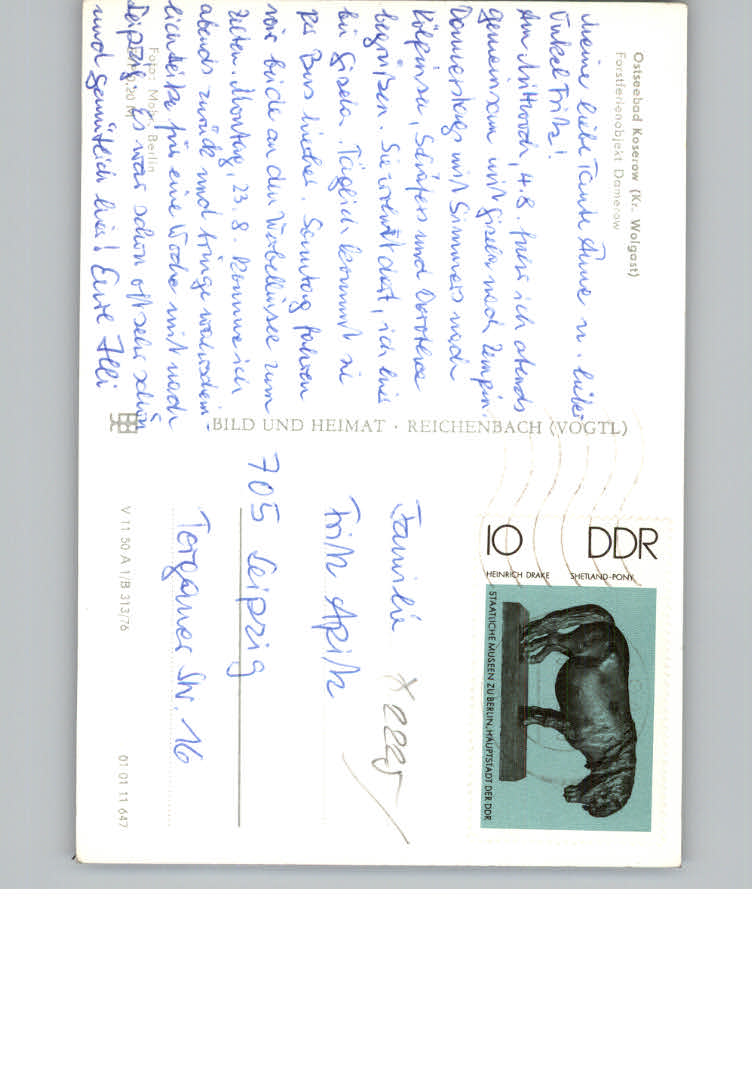 Ostseebad Koserow (Kr. Wolgast)
Forstferienobjekt Damerow
Meine liebe Tante Anne u. lieber
Onkel Fritz!
Am Mittwoch, 4.8. fuhr ich abends
gemeinsam mit Gisela nach Zempin.
Donnerstags mit Simmers nach
Kölpinsee, Schäfers und Dorothea
begrüßen. Sie vermutet, ich bin
bei Gisela. Täglich kommt sie
per Bus hierher. Sonntag fahren
wir beide an den Werbellinsee zum
Zelten. Montag, 23.8. komme ich
abends zurück und bringe wahrschein-
lich für eine Woche mit nach
Leipzig. Es war schon oft sehr schön
und gemütlich hier! Eure Illi
Foto: Mohr, Berlin
0,20 M
BILD UND HEIMAT · REICHENBACH (VOGTL)
10 DDR
HEINRICH DRAKE SHETLAND-PONY
STAATLICHE MUSEEN ZU BERLIN, HAUPTSTADT DER DDR
Familie
Fritz Apitz
705 Leipzig
Torgauer Str. 16
V 11 50 A 1/B 313/76
01 01 11 647